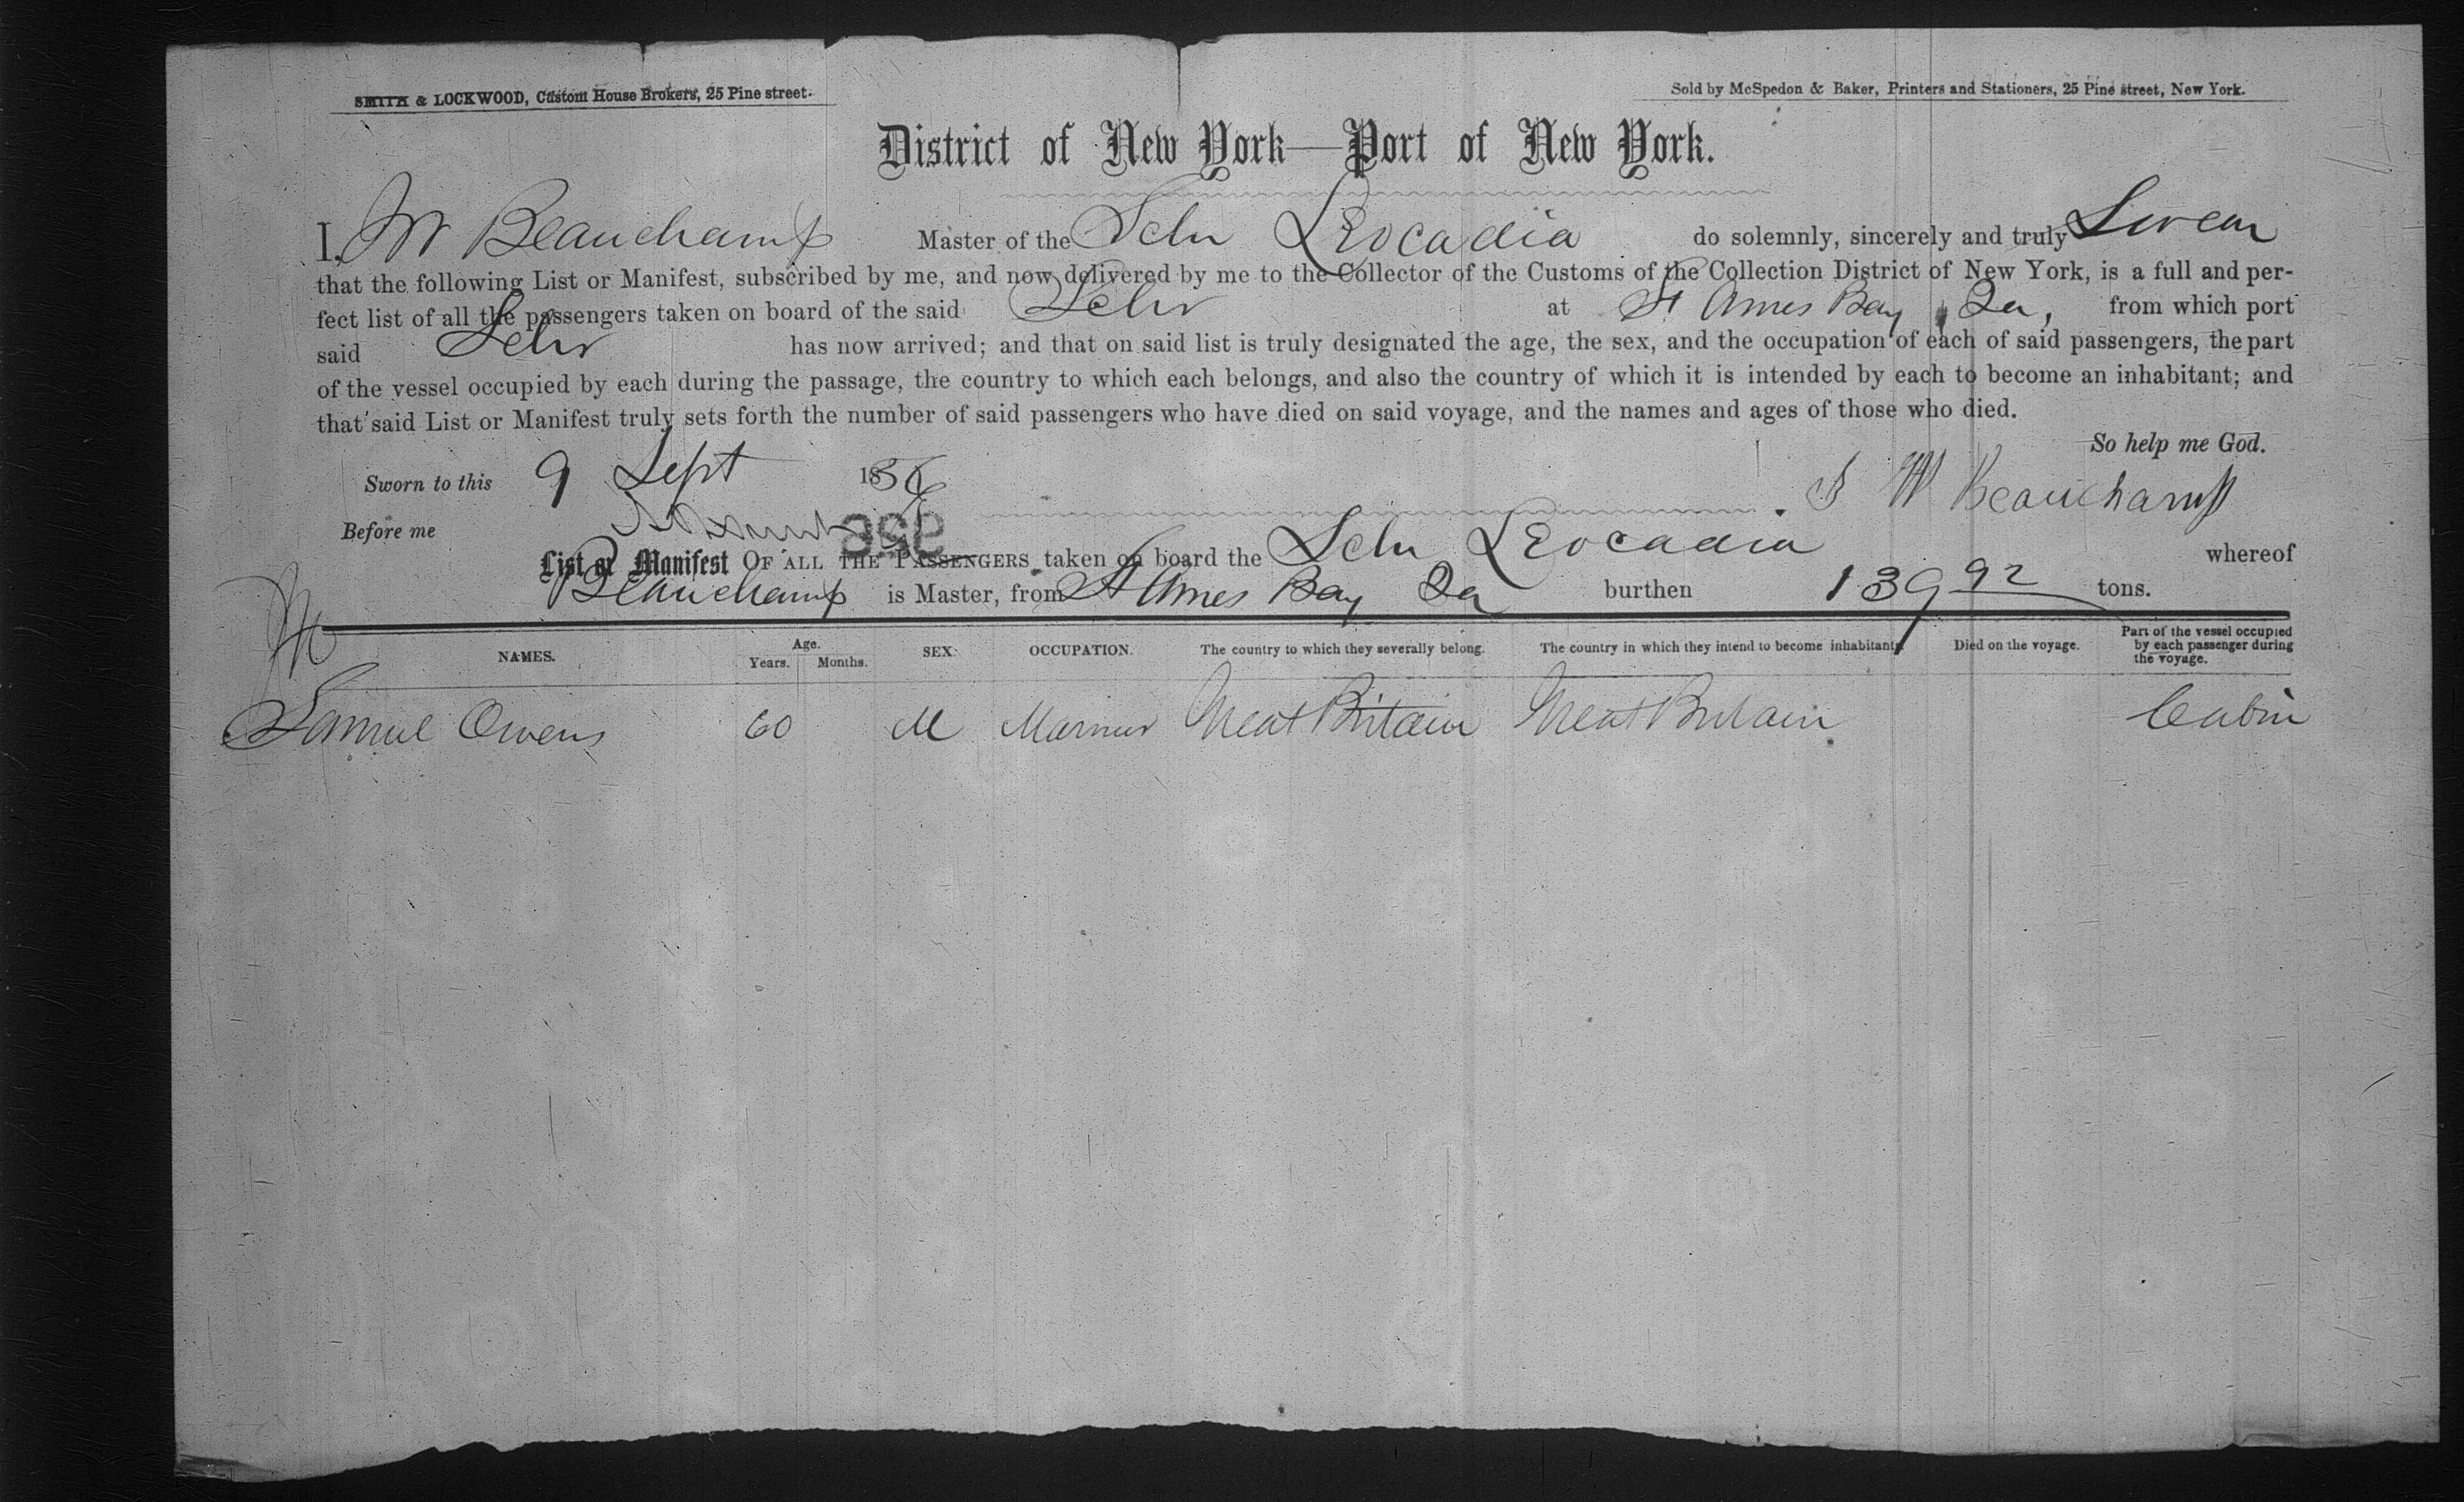 SMITH & LOCKWOOD, Custom House Brokers, 25 Pine street.
Sold by McSpedon & Baker, Printers and Stationers, 25 Pine street, New York.
District of New York—Port of New York.
I, W Beauchamp Master of the Schr Leocadia do solemnly, sincerely and truly Swear
that the following List or Manifest, subscribed by me, and now delivered by me to the Collector of the Customs of the Collection District of New York, is a full and per-
fect list of all the passengers taken on board of the said Schr at St Annes Bay, Ja, from which port
said Schr has now arrived; and that on said list is truly designated the age, the sex, and the occupation of each of said passengers, the part
of the vessel occupied by each during the passage, the country to which each belongs, and also the country of which it is intended by each to become an inhabitant; and
that said List or Manifest truly sets forth the number of said passengers who have died on said voyage, and the names and ages of those who died.
So help me God.
Sworn to this 9 Sept 1856
W Beauchamp
Before me
956
List or Manifest OF ALL THE PASSENGERS taken on board the Schr Leocadia whereof
Beauchamp is Master, from St Annes Bay Ja burthen 139 92 tons.
NAMES. Age. Years. Months. SEX. OCCUPATION. The country to which they severally belong. The country in which they intend to become inhabitants. Died on the voyage. Part of the vessel occupied by each passenger during the voyage.
Samuel Owens 60 M Mariner Great Britain Great Britain Cabin